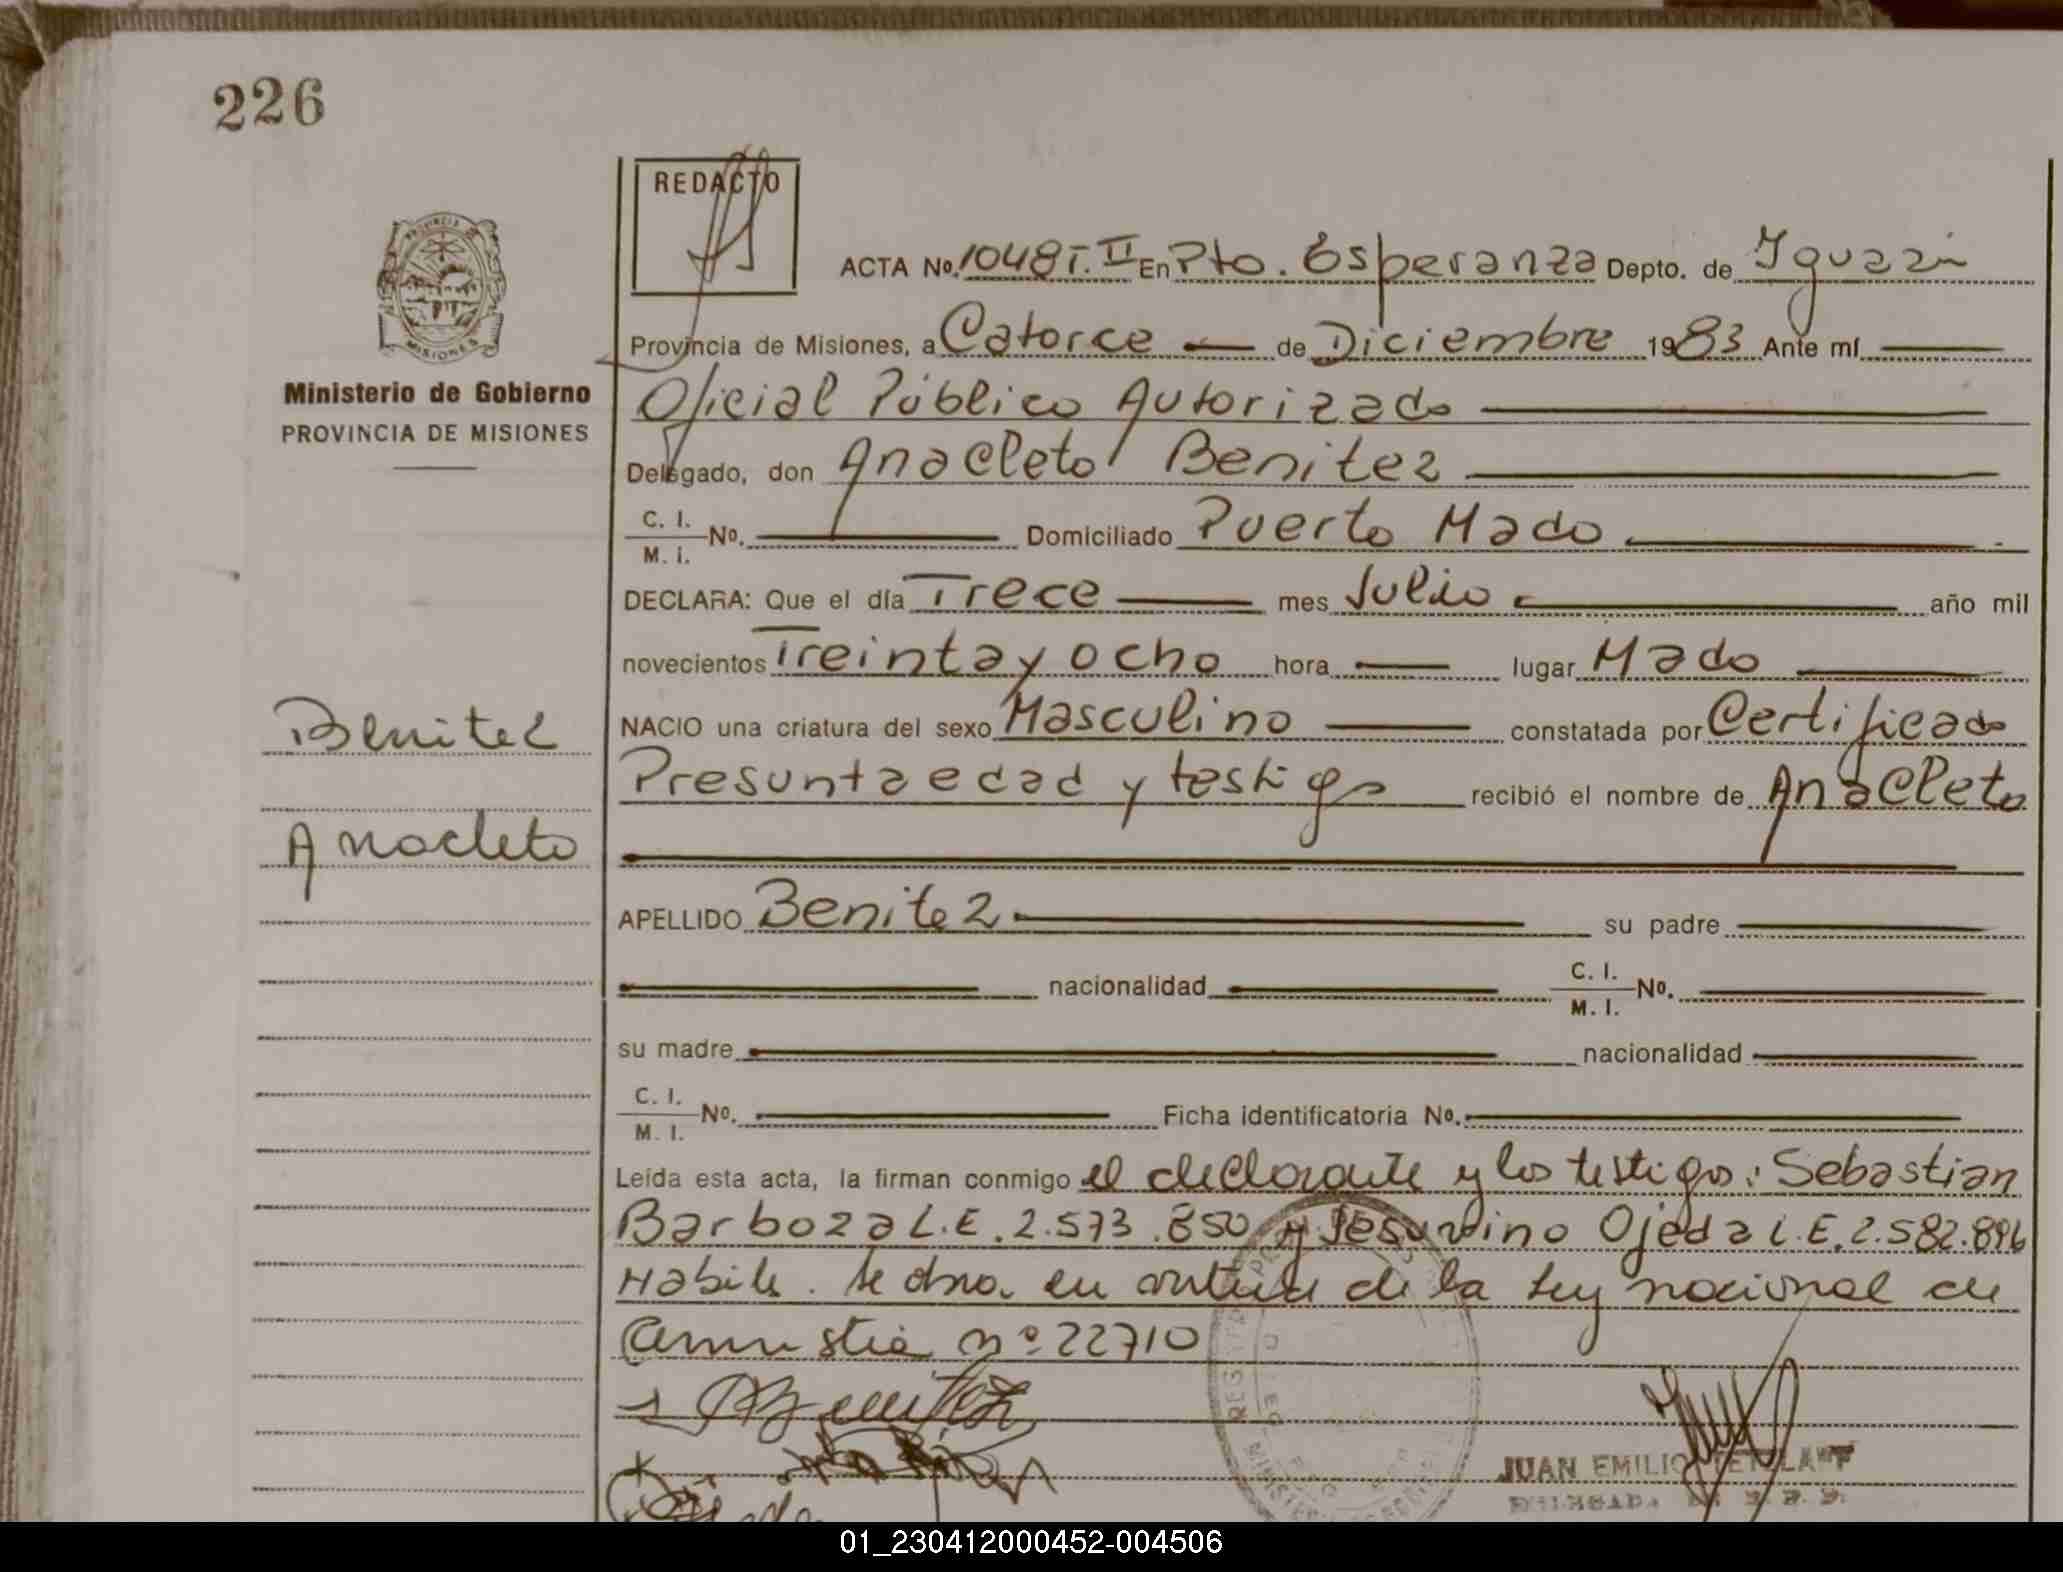 226
REDACTO
ACTA No. 1048 T. II En Pto. Esperanza Depto. de Iguazú
PROVINCIA DE
MISIONES
Provincia de Misiones, a Catorce de Diciembre 1983 Ante mí
Ministerio de Gobierno
PROVINCIA DE MISIONES
Oficial Público Autorizado
Delegado, don Anacleto Benitez
C. I.
M. i. No. Domiciliado Puerto Mado
DECLARA: Que el día Trece mes Julio año mil
novecientos Treinta y ocho hora lugar Mado
NACIO una criatura del sexo Masculino constatada por Certificado
Benitez
Presunta edad y testigo recibió el nombre de Anacleto
Anacleto
APELLIDO Benitez su padre
nacionalidad C. I.
M. I. No.
su madre nacionalidad
C. I.
M. I. No. Ficha identificatoria No.
Leída esta acta, la firman conmigo el declarante y los testigos: Sebastian
Barboza L.E. 2.573.850 y Jesuvino Ojeda L.E. 2.582.896
Habiles. en virtud de la Ley nacional de
amnistia nº 22710
JUAN EMILIO
01_230412000452-004506